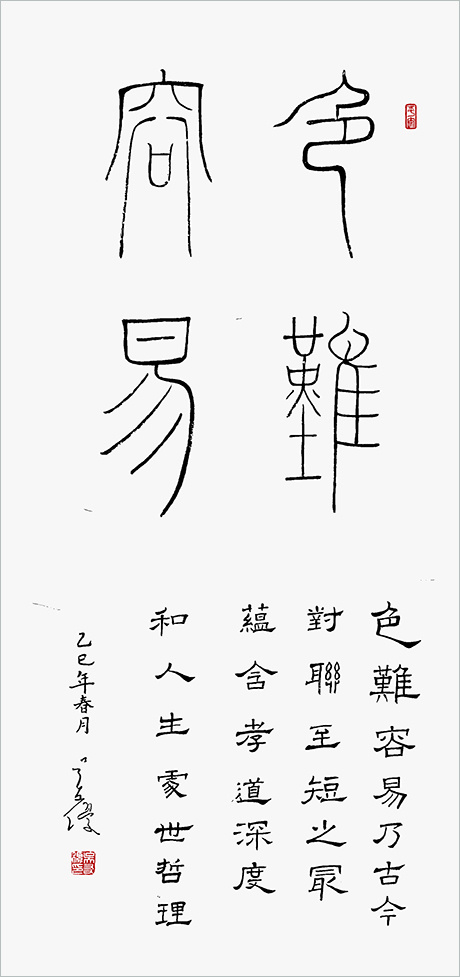 色難
容易
色難容易乃古今
對聯至短之冣
蘊含孝道深度
和人生處世哲理
乙巳年春月